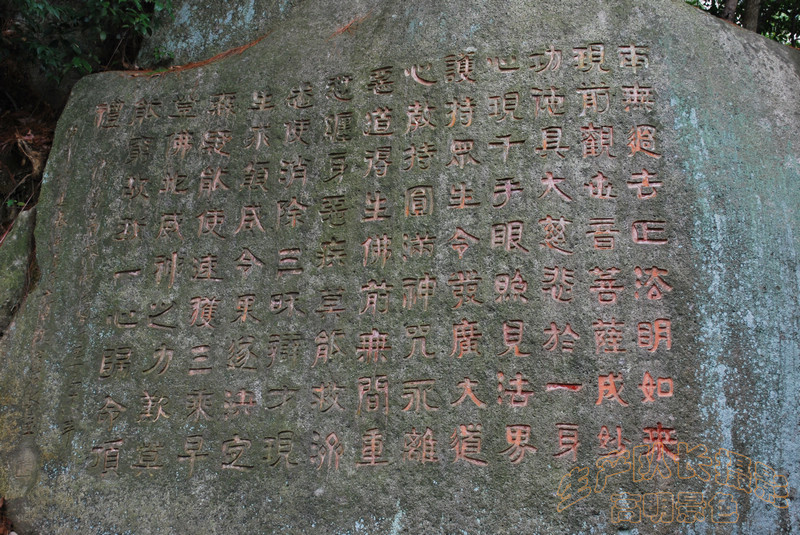 南無過去正法明如來
現前觀世音菩薩成妙
功德具大慈悲於一身
心現千手眼照見法界
護持眾生令發廣大道
心教持圓滿神咒永離
惡道得生佛前無間重
愆纏身惡疾莫能救濟
悉使消除三昧辯才現
生求願咸令果遂決定
無疑能使速獲三乘早
登佛地威神之力歎莫
能窮故我一心歸命頂
禮
生产队长